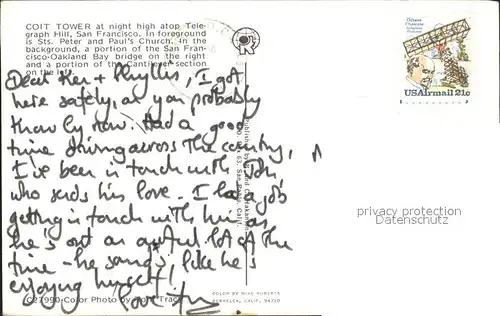 COIT TOWER at night high atop Tele-
graph Hill, San Francisco. In foreground
is Sts. Peter and Paul's Church. In the
background, a portion of the San Fran-
cisco-Oakland Bay bridge on the right
and a portion of the Cantilever section
on the left.
Dear Ken + Phyllis, I got
here safely as you probably
know by now. Had a good
time driving across the country,
I've been in touch with
who sends his love. I had a job
getting in touch with him as
he's out an awful lot of the
time - he sounds like he's
enjoying himself!
Love
C27990-Color Photo by
COLOR BY MIKE ROBERTS
BERKELEY, CALIF. 94710
Published by
San Pablo, Calif.
Octave
Chanute
Aviation
Pioneer
USAirmail 21c
privacy protection
Datenschutz